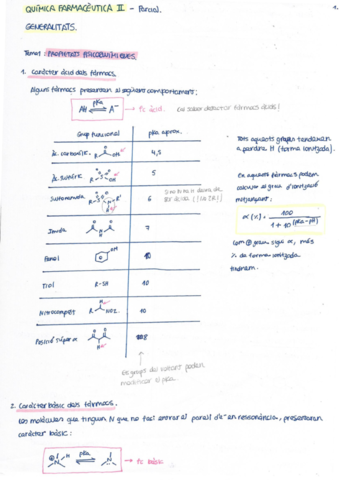 QUÍMICA FARMACÈUTICA II - Parcial.
1.
GENERALITATS.
Tema 1: PROPIETATS FISICOQUÍMIQUES.
1. Caràcter àcid dels fàrmacs.
Alguns fàrmacs presentaran el següent comportament:
AH ⇌ A⁻
pka
Grup funcional
pka aprox.
Àc. carboxílic.
4,5
5
Sulfonamida
6
Imida
7
Fenol
10
Tiol
R-SH
10
Nitrocompost
R
NO2
10
Tots aquests grups tendiran
a perdre H (forma ionitzada).
En aquests fàrmacs podem
calcular el grau d'ionització
mitjançant:
α (%) = 100
1 + 10^(pka-pH)
Com + gran sigui α, més
% de forma ionitzada
tindrem.
Els grups del voltant poden
el pka.
2. Caràcter bàsic dels fàrmacs.
Les molècules que tinguin N que no faci entrar el parell d'e⁻ en ressonància, presentaran
caràcter bàsic:
pka
N
H
N